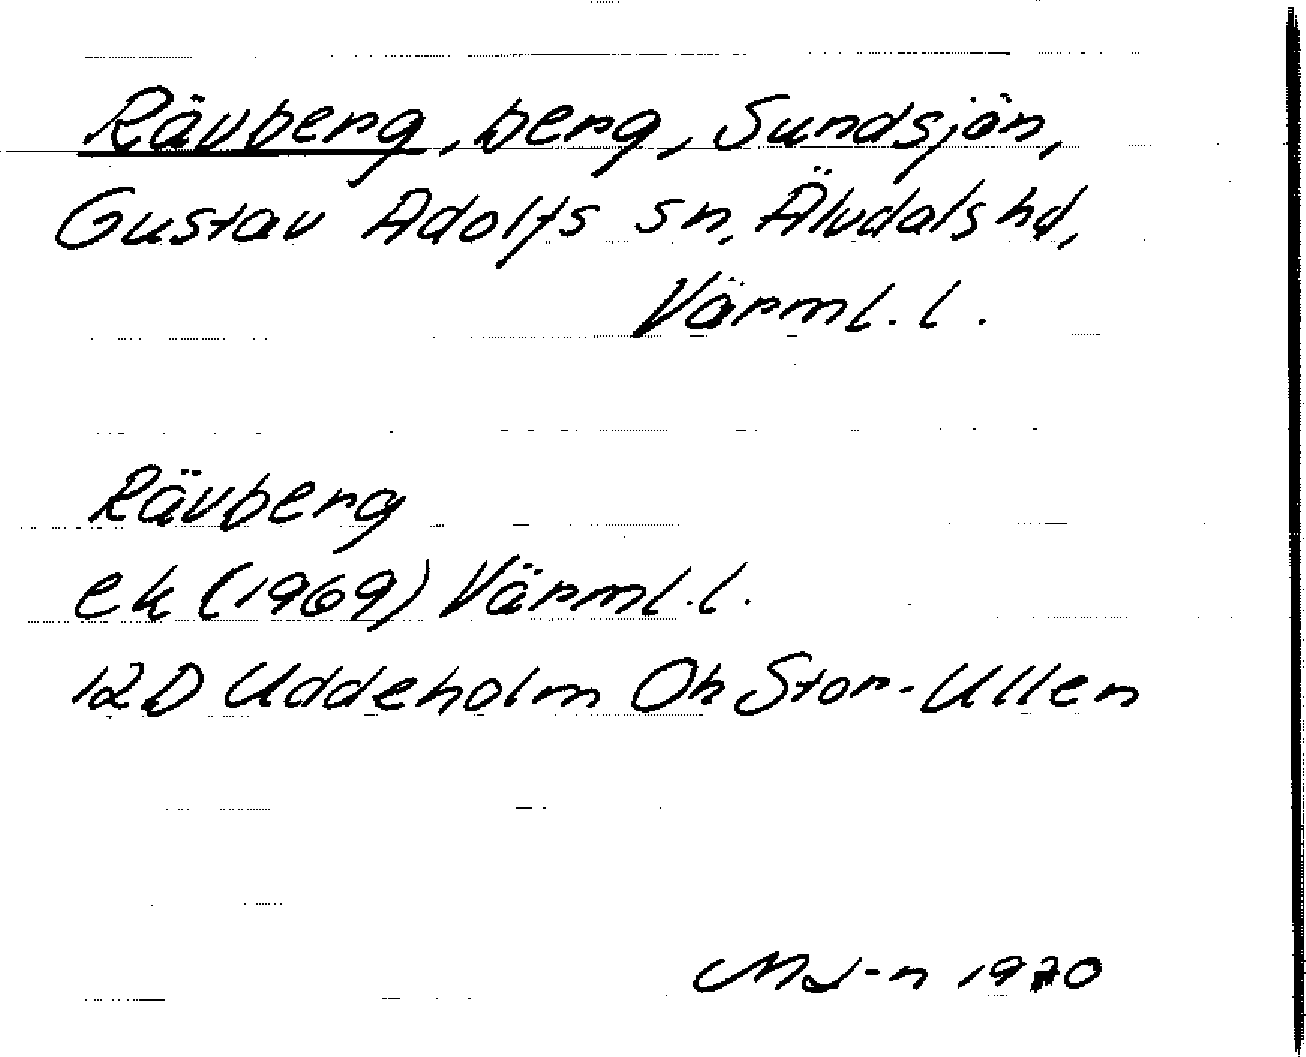 Rävberg, berg, Sundsjön,
Gustav Adolfs sn, Älvdals hd,
Värml. l.
Rävberg
ek (1969) Värml. l.
12D Uddeholm Oh Stor-Ullen
MJ-n 1970